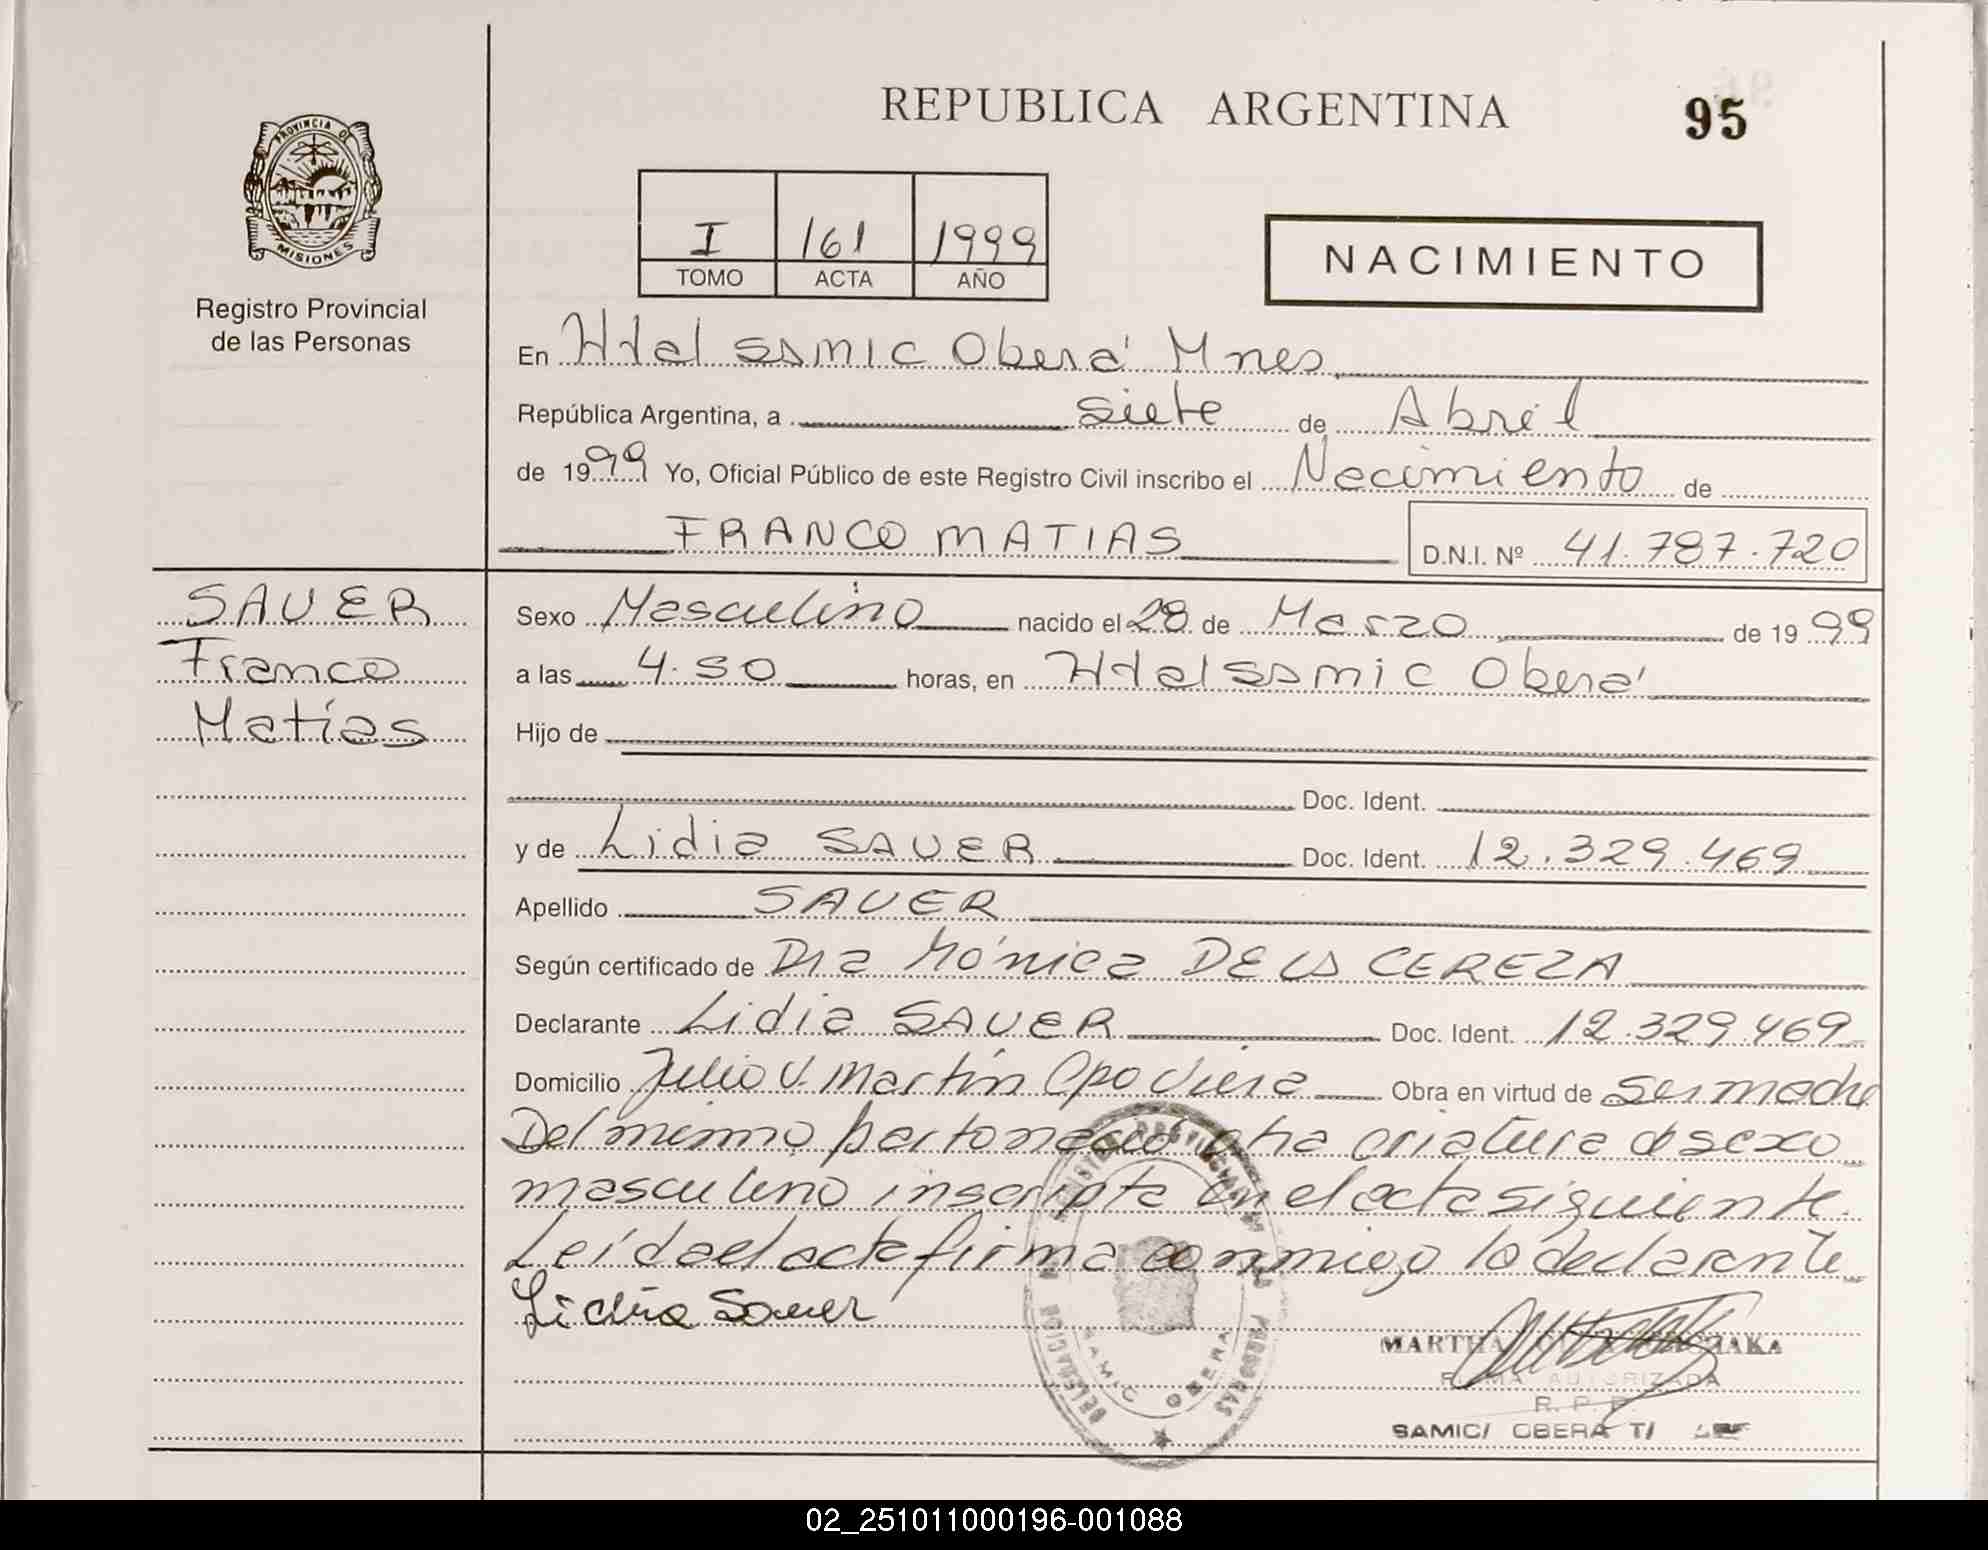 REPUBLICA ARGENTINA
95
PROVINCIA DE
MISIONES
Registro Provincial
de las Personas
I 161 1999
TOMO ACTA AÑO
NACIMIENTO
En Htal SAMIC Oberá Mnes
República Argentina, a siete de Abril
de 1999 Yo, Oficial Público de este Registro Civil inscribo el Nacimiento de
FRANCO MATIAS D.N.I. Nº 41.787.720
SAUER
Franco
Matías
Sexo Masculino nacido el 28 de Marzo de 1999
a las 4.50 horas, en Htal SAMIC Oberá
Hijo de
Doc. Ident.
y de Lidia SAUER Doc. Ident. 12.329.469
Apellido SAUER
Según certificado de Dra Mónica DE LA CEREZA
Declarante Lidia SAUER Doc. Ident. 12.329.469
Domicilio Julio U. Martín Cpo Viera Obra en virtud de ser madre
Del mismo parto nació otra criatura d sexo
masculino inscripta en el acta siguiente.
Leída el acta firma conmigo la declarante
Lidia Sauer
MARTHA
FIRMA AUTORIZADA
R. P. P.
SAMIC/ OBERA T/
DELEGACION REGISTRO PROVINCIAL DE LAS PERSONAS
SAMIC OBERA
02_251011000196-001088